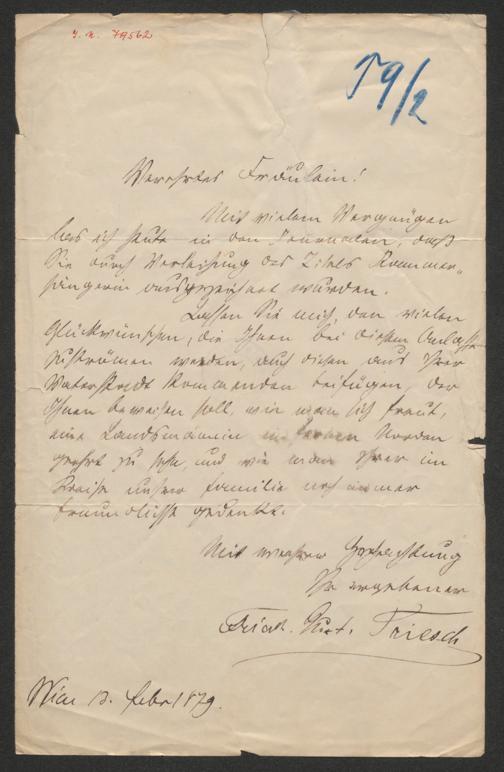 J. N. 79562
59/2
Verehrtes Fräulein!
Mit vielem Vergnügen
las ich heute in den Journalen, daß
Sie durch Verleihung des Titels Kammer-
sängerin ausgezeichnet wurden.
Lassen Sie mich, den vielen
Glückwünschen, die Ihnen bei diesem Anlasse
zuströmen werden, auch diesen aus Ihrer
Vaterstadt kommenden beifügen, der
Ihnen beweisen soll, wie man sich freut,
eine Landsmännin im fernen Norden
geehrt zu sehen, und wie man Ihrer im
Kreise unsrer Familie noch immer
freundlichst gedenkt.
Mit wahrer Hochachtung
Ihr ergebener
Friedr. Gust. Triesch
Wien Febr 1879.